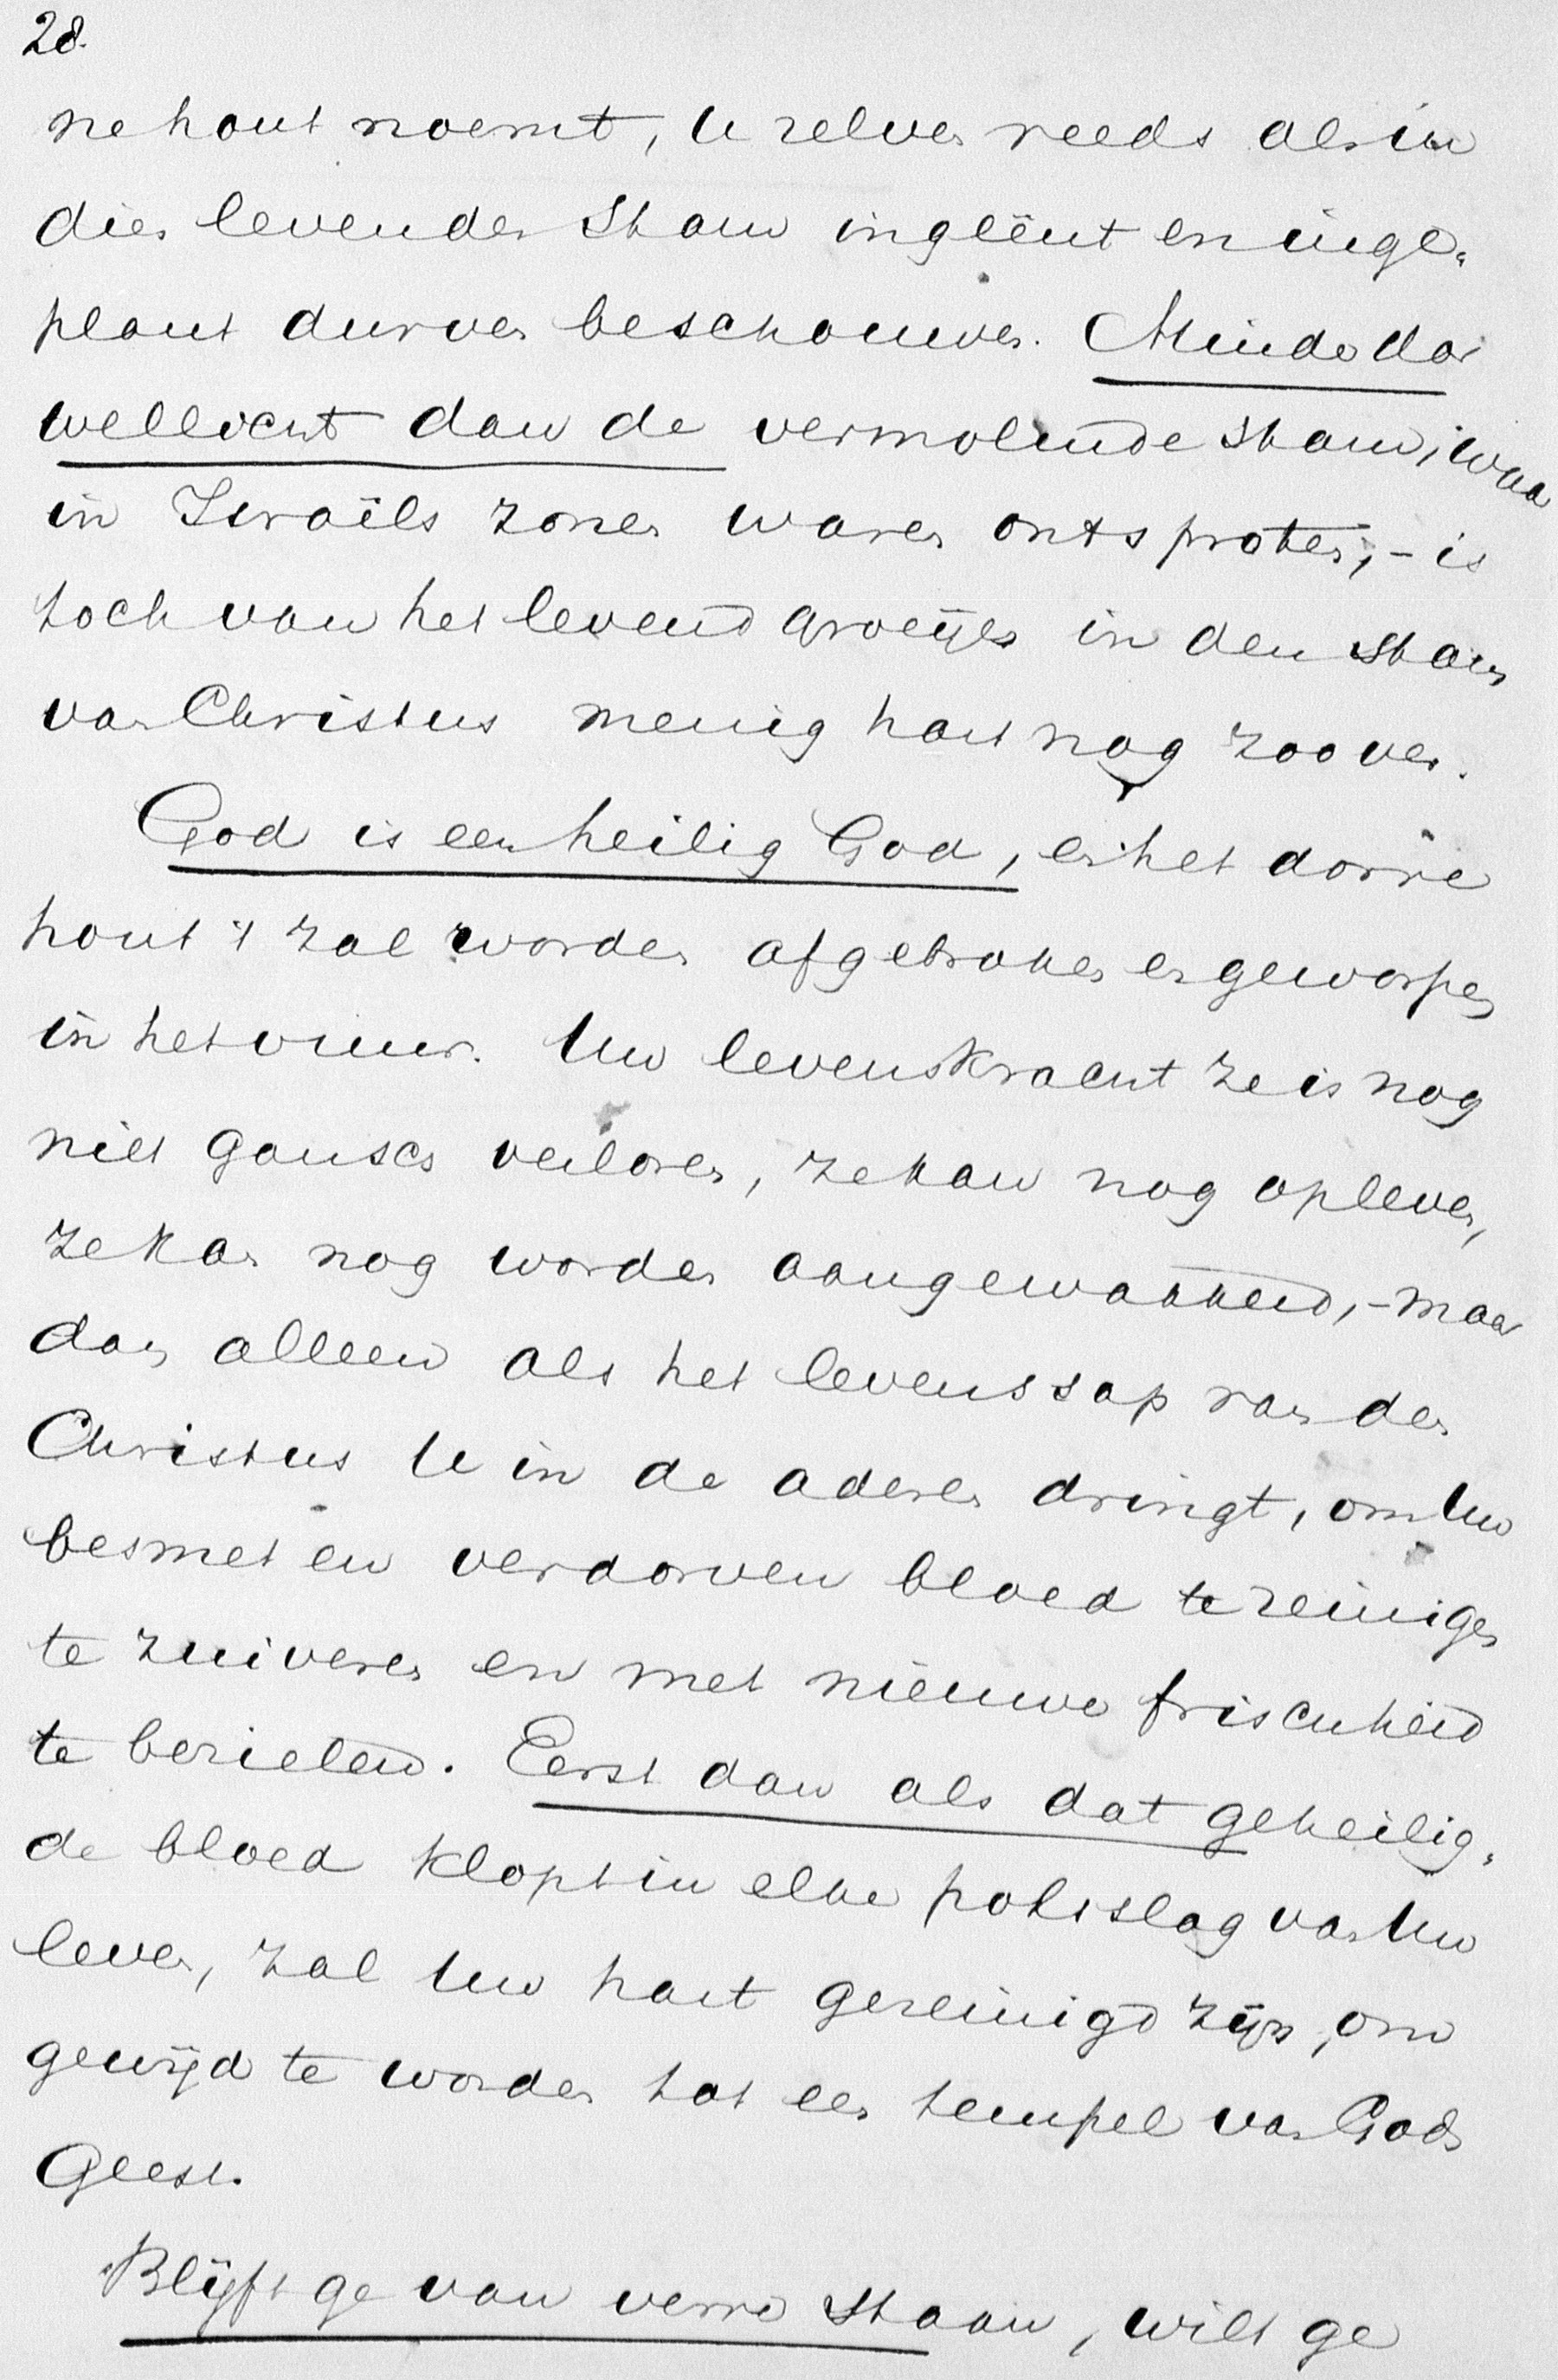 28.
ne hout noemt, U zelven reeds als in
dien levenden stam ingeënt en inge-
plant durven beschouwen. Minder dor
wellicht dan de vermolmde stam, waar
in Israëls zonen waren ontsproten, – is
toch van het levend groeijen in den stam
van Christus menig hart nog zoo ver.
God is een heilig God, en het dorre
hout 't zal worden afgebroken en geworpen
in het vuur. Uw levenskracht ze is nog
niet gansch verloren, ze kan nog opleven,
ze kan nog worden aangewakkerd, – maar
dan alleen als het levenssap van den
Christus U in de aderen dringt, om Uw
besmet en verdorven bloed te reinigen
te zuiveren en met nieuwe frischheid
te bezielen. Eerst dan als dat geheilig-
de bloed klopt in elke polsslag van Uw
leven, zal Uw hart gereinigd zijn, om
gewijd te worden tot een tempel van Gods
Geest.
Blijft ge van verre staan, wilt ge